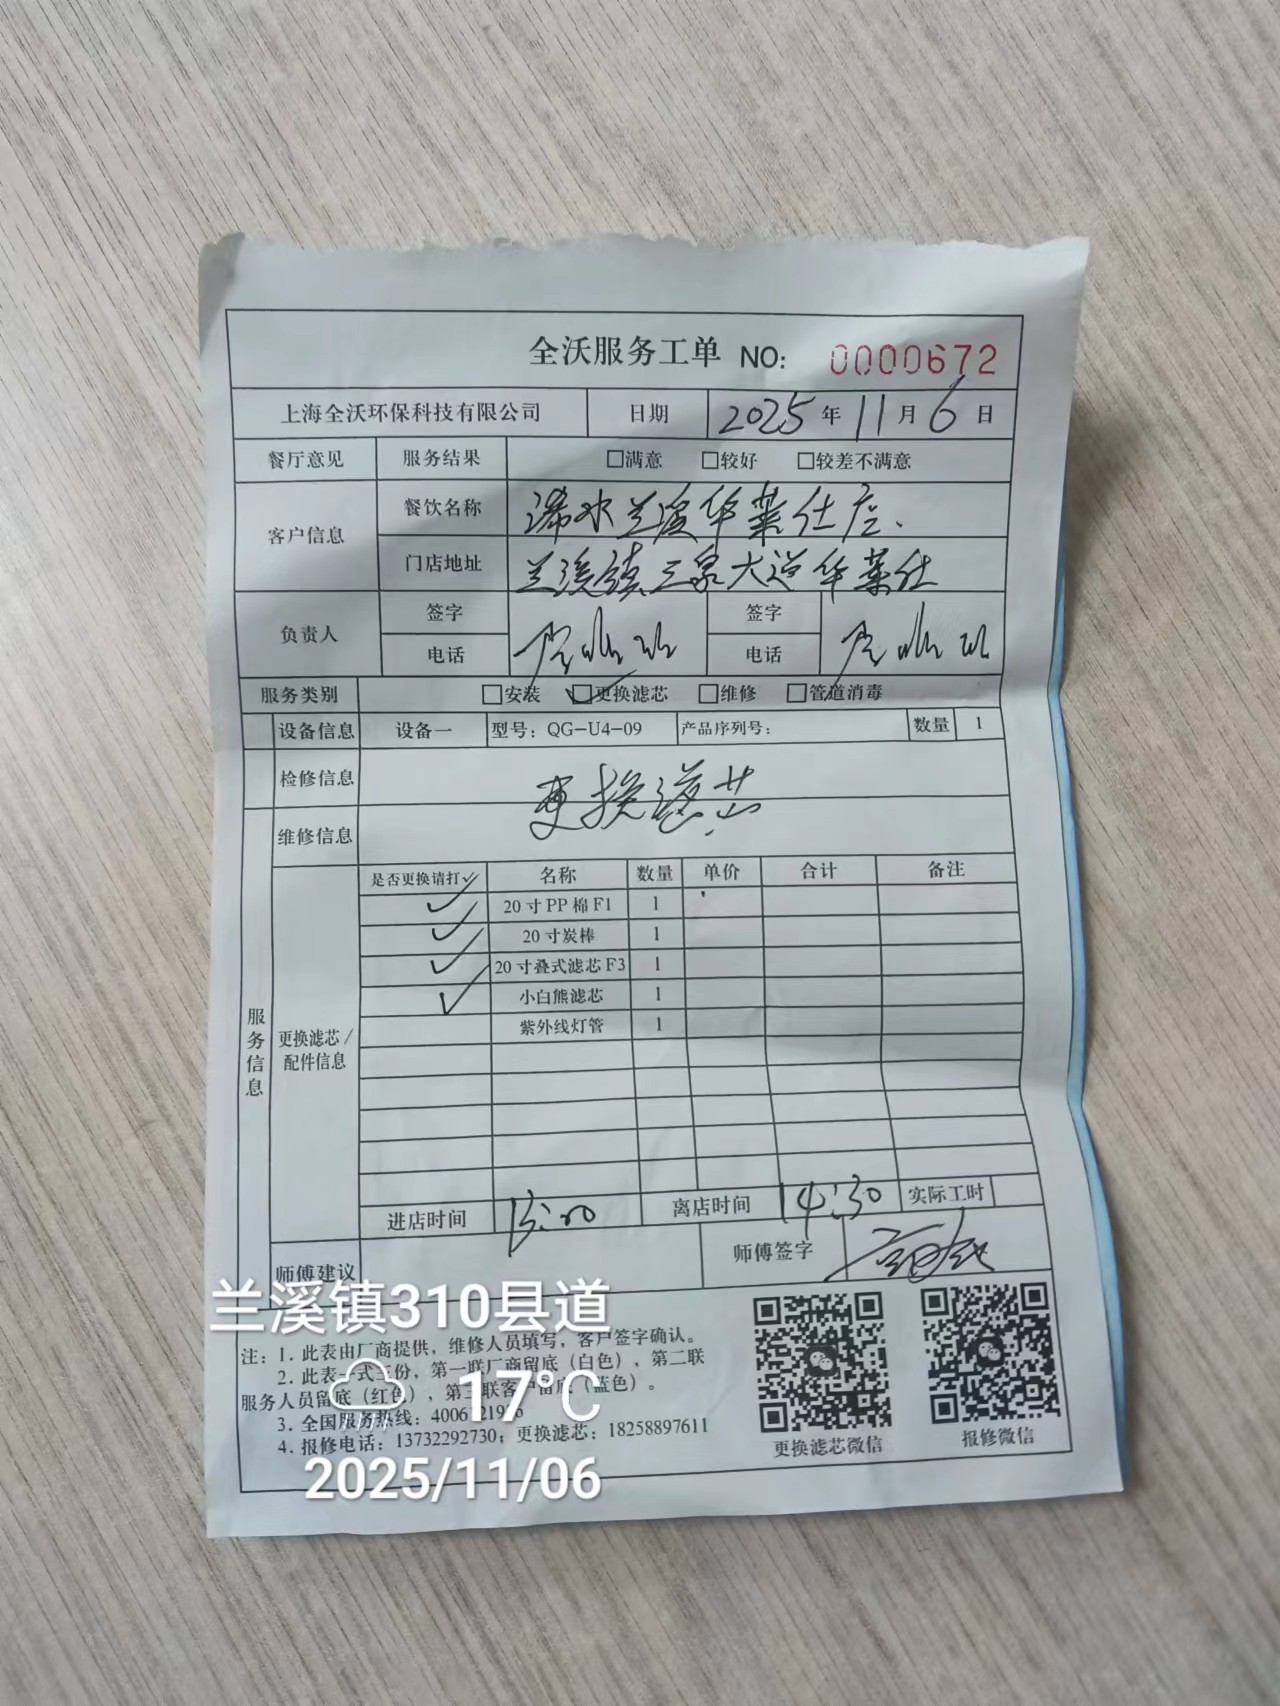 全沃服务工单 NO: 0000672
上海全沃环保科技有限公司 日期 2025 年 11 月 6 日
餐厅意见 服务结果 □满意 □较好 □较差不满意
客户信息 餐饮名称 浠水兰溪华莱仕店.
门店地址 兰溪镇三泉大道华莱仕
负责人 签字 签字
电话 电话
服务类别 □安装 ☑更换滤芯 □维修 □管道消毒
设备信息 设备一 型号: QG-U4-09 产品序列号: 数量 1
检修信息 更换滤芯
维修信息
服务信息
更换滤芯/配件信息
是否更换请打✓ 名称 数量 单价 合计 备注
✓ 20寸PP棉F1 1
✓ 20寸炭棒 1
✓ 20寸叠式滤芯F3 1
✓ 小白熊滤芯 1
紫外线灯管 1
进店时间 13:00 离店时间 14:30 实际工时
师傅建议 师傅签字
兰溪镇310县道
注: 1. 此表由厂商提供，维修人员填写，客户签字确认。
2. 此表一式三份，第一联厂商留底（白色），第二联
服务人员留底（红色），第三联客户留底（蓝色）。
3. 全国服务热线:
4. 报修电话: 13732292730; 更换滤芯: 18258897611
更换滤芯微信 报修微信
17°C
2025/11/06